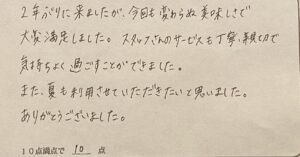 2年ぶりに来ましたが、今回も変わらぬ美味しさで
大変満足しました。スタッフさんのサービスも丁寧、親切で
気持ちよく過ごすことができました。
また、夏も利用させていただきたいと思いました。
ありがとうございました。
10点満点で 10 点